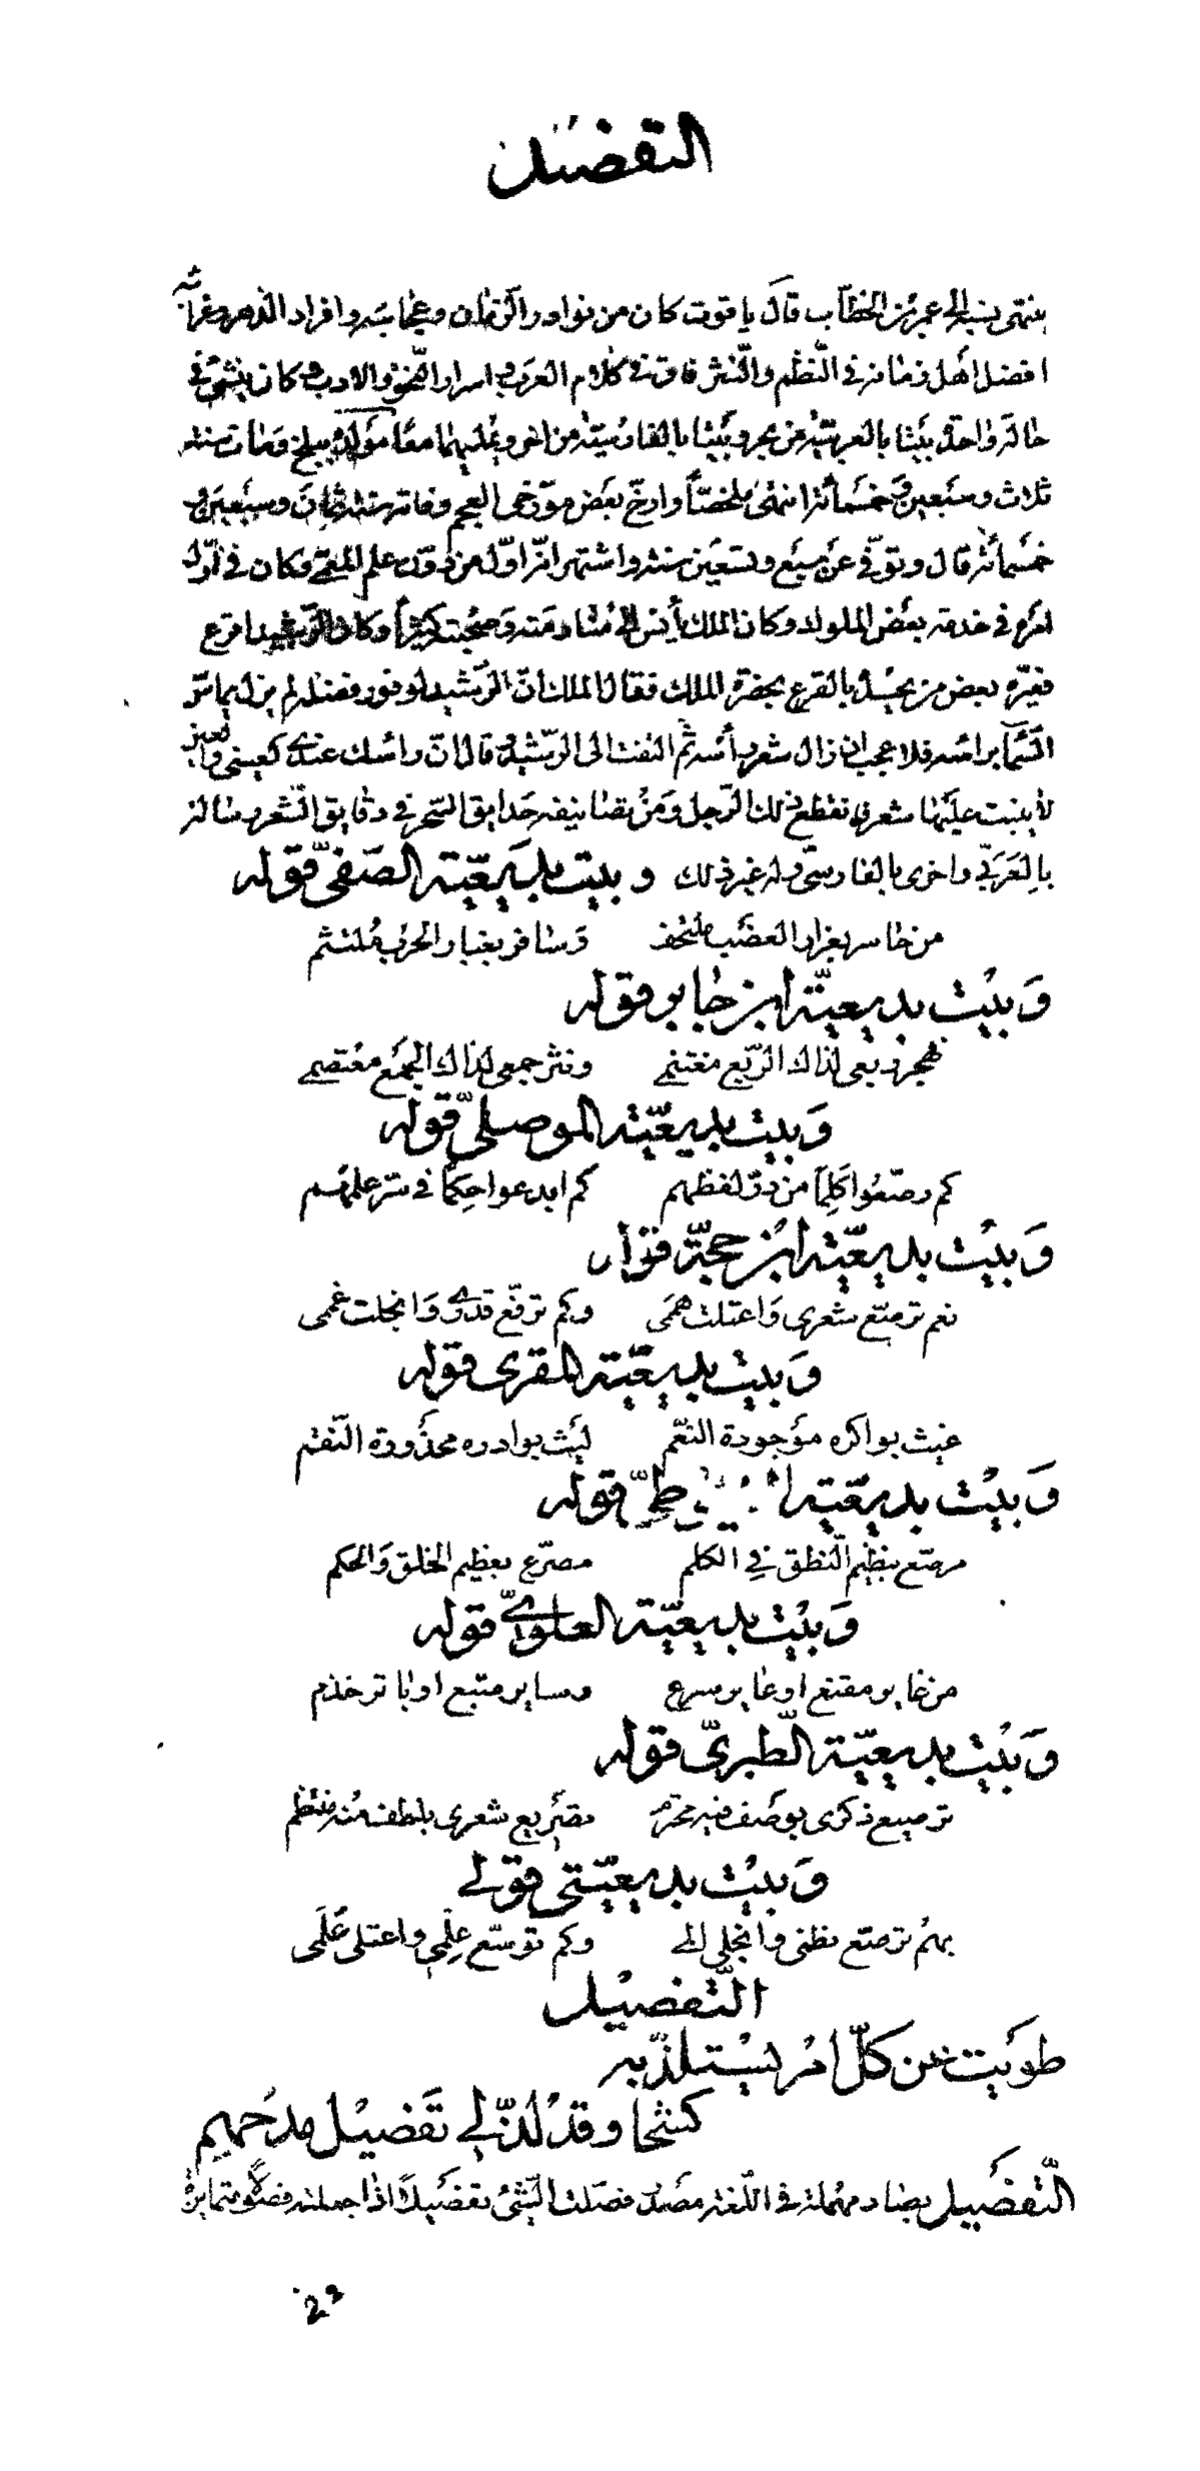 التفضيل
ينتهي نسبه الى عمر بن الخطاب قال ياقوت كان من نوادر الزمان وعجائبه وافراد الدهر وغرائبه
افضل اهل زمانه في النظم والنثر فاق في كلام العرب و اسرار النحو والادب كان ينشئ في
حالة واحدة بيتا بالعربية من بحر وبيتا بالفارسية من اخر ويمليهما معا مولده ببلخ ومات سنة
ثلاث وسبعين و خمسمائة انتهى ملخصاً وارخ بعض مورخي العجم وفاته سنة ثمان وسبعين و
خمسمائة قال وتوفي عن سبع وتسعين سنة واشتهر انه اول من دون علم المعمى وكان في اول
امره في خدمة بعض الملوك وكان الملك يأنس الى منادمته وصحبته كثيراً وكان الرشيد اقرع
فعيره بعض من بحسده بالقرع بحضرة الملك فقال الملك ان الرشيد لوفور فضله لم يزل يماس
السما براسه فلا عجب ان زال شعر رأسه ثم التفت الى الرشيد و قال ان راسك عندي كعيني والعين
لا ينبت عليها شعر فانقطع ذلك الرجل ومن تصانيفه حدايق السحر في دقايق الشعر رسالة
بالعربي واخرى بالفارسي وله غير ذلك وبيت بديعية الصفي قوله
من حاسر بغرار العضب ملتحف وسافر بغبار الحرب ملتثم
وبيت بديعية ابن جابر قوله
فهجر ربعي لذاك الربع مغتنمي ونثر جمعي لذاك الجمع معتصمي
وبيت بديعية الموصلي قوله
كم رصعوا كلما من در لفظهم كم ابدعوا حكما في سر علمهم
وبيت بديعية ابن حجة قوله
نعم ترصع شعري واعتلت هممي وكم ترفع قدري وانجلت غممي
وبيت بديعية المقري قوله
غيث بواكره موجودة النعم ليث بوادره محذورة النقم
وبيت بديعية السيوطي قوله
مرصع بنظيم النطق في الكلم مصرع بعظيم الخلق والحكم
وبيت بديعية العلوي قوله
من غاير مقنع اوعاير مسرع وساير متبع اوباتر خذم
وبيت بديعية الطبري قوله
ترصيع ذكري بوصف فيه محترم تصريع شعري بلطف منه منتظم
وبيت بديعيتي قولي
بهم ترصع نظمي وانجلي المي وكم توسع علمي واعتلى علمي
التفضيل
طويت عن كل امر يستلذ به
كشحا وقد لذ لي تفضيل مدحهم
التفضيل بضاد مهملة في اللغة مصدر فصلت الشئ تفضيلاً اذا جعلته فصولا متمايزة